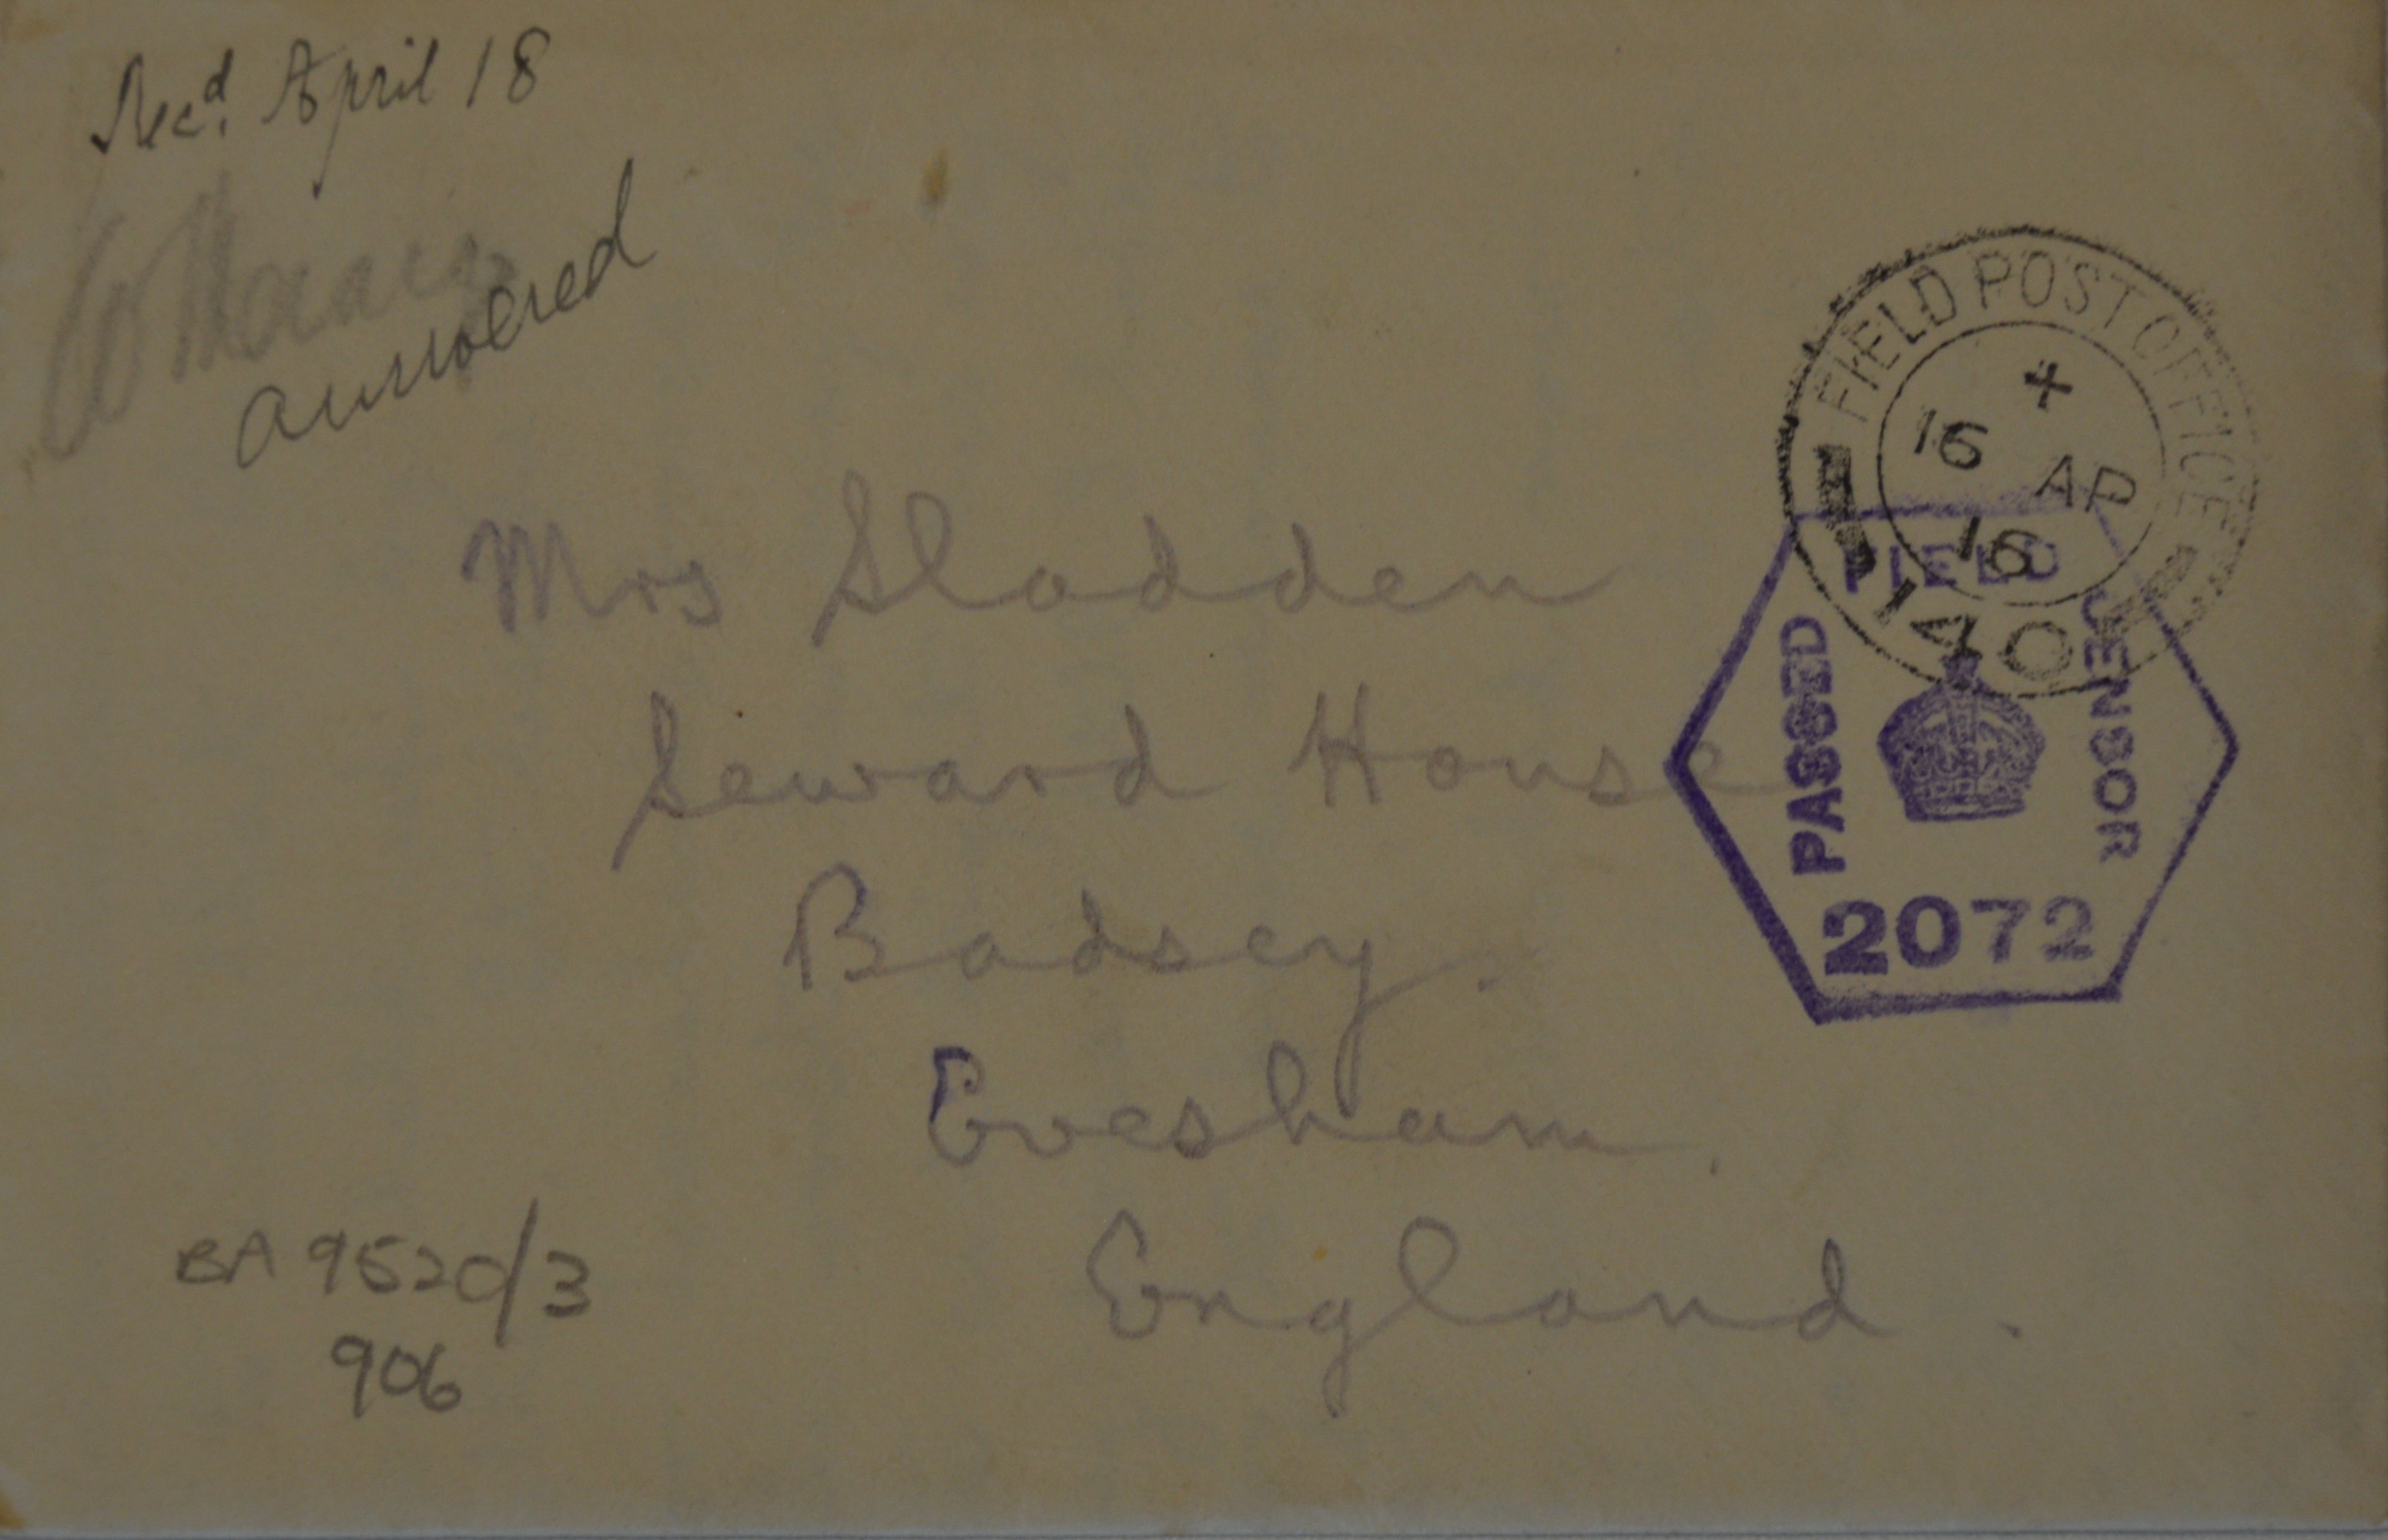 Recd. April 18
answered
FIELD POST OFFICE
+
16 AP
16
140
Mrs Sladden
Seward House
Badsey.
Evesham.
England.
PASSED FIELD CENSOR
2072
BA 9520/3
906